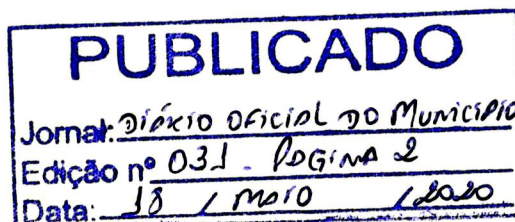 PUBLICADO
Jornal: DIÁRIO OFICIAL DO MUNICIPIO
Edição nº 031 - PÁGINA 2
Data: 18 / MAIO / 2020